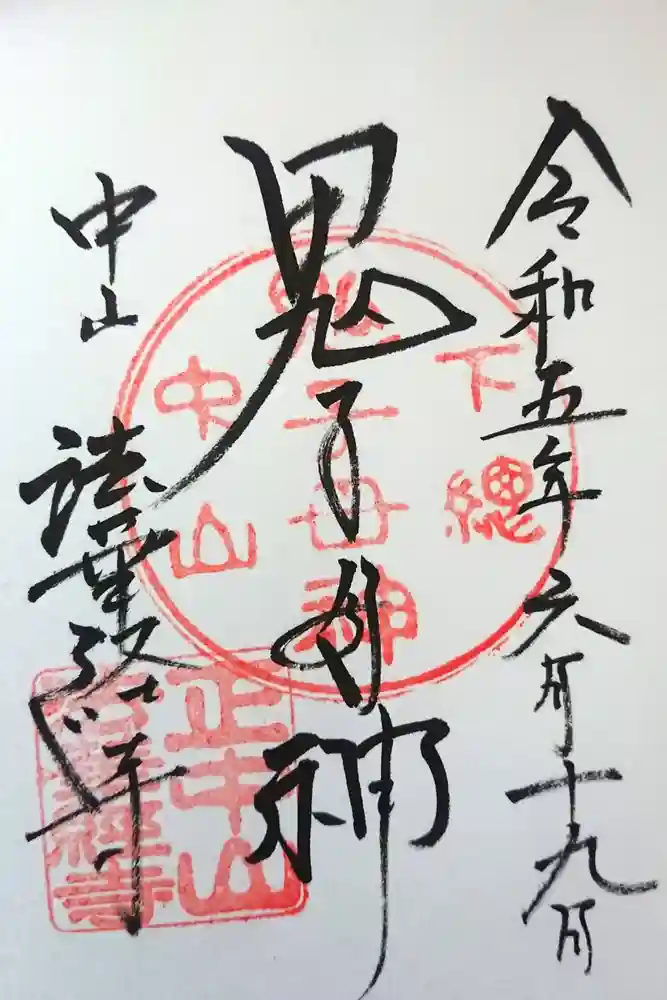 令和五年六月十九日
鬼子母神
中山
法華経寺
下總
鬼子母神
中山
正中山
法華經寺